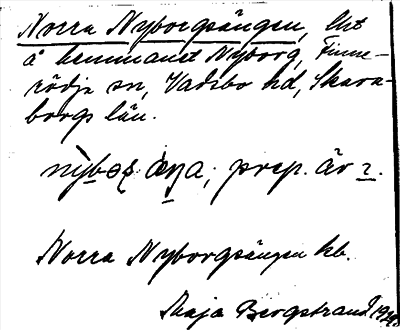 Norra Nyborgsängen, lht
å hemmanet Nyborg, Finne-
rödja sn, Vadsbo hd, Skara-
borgs län.
prep. är ɩ.
Norra Nyborgsängen kb.
Maja Bergstrand